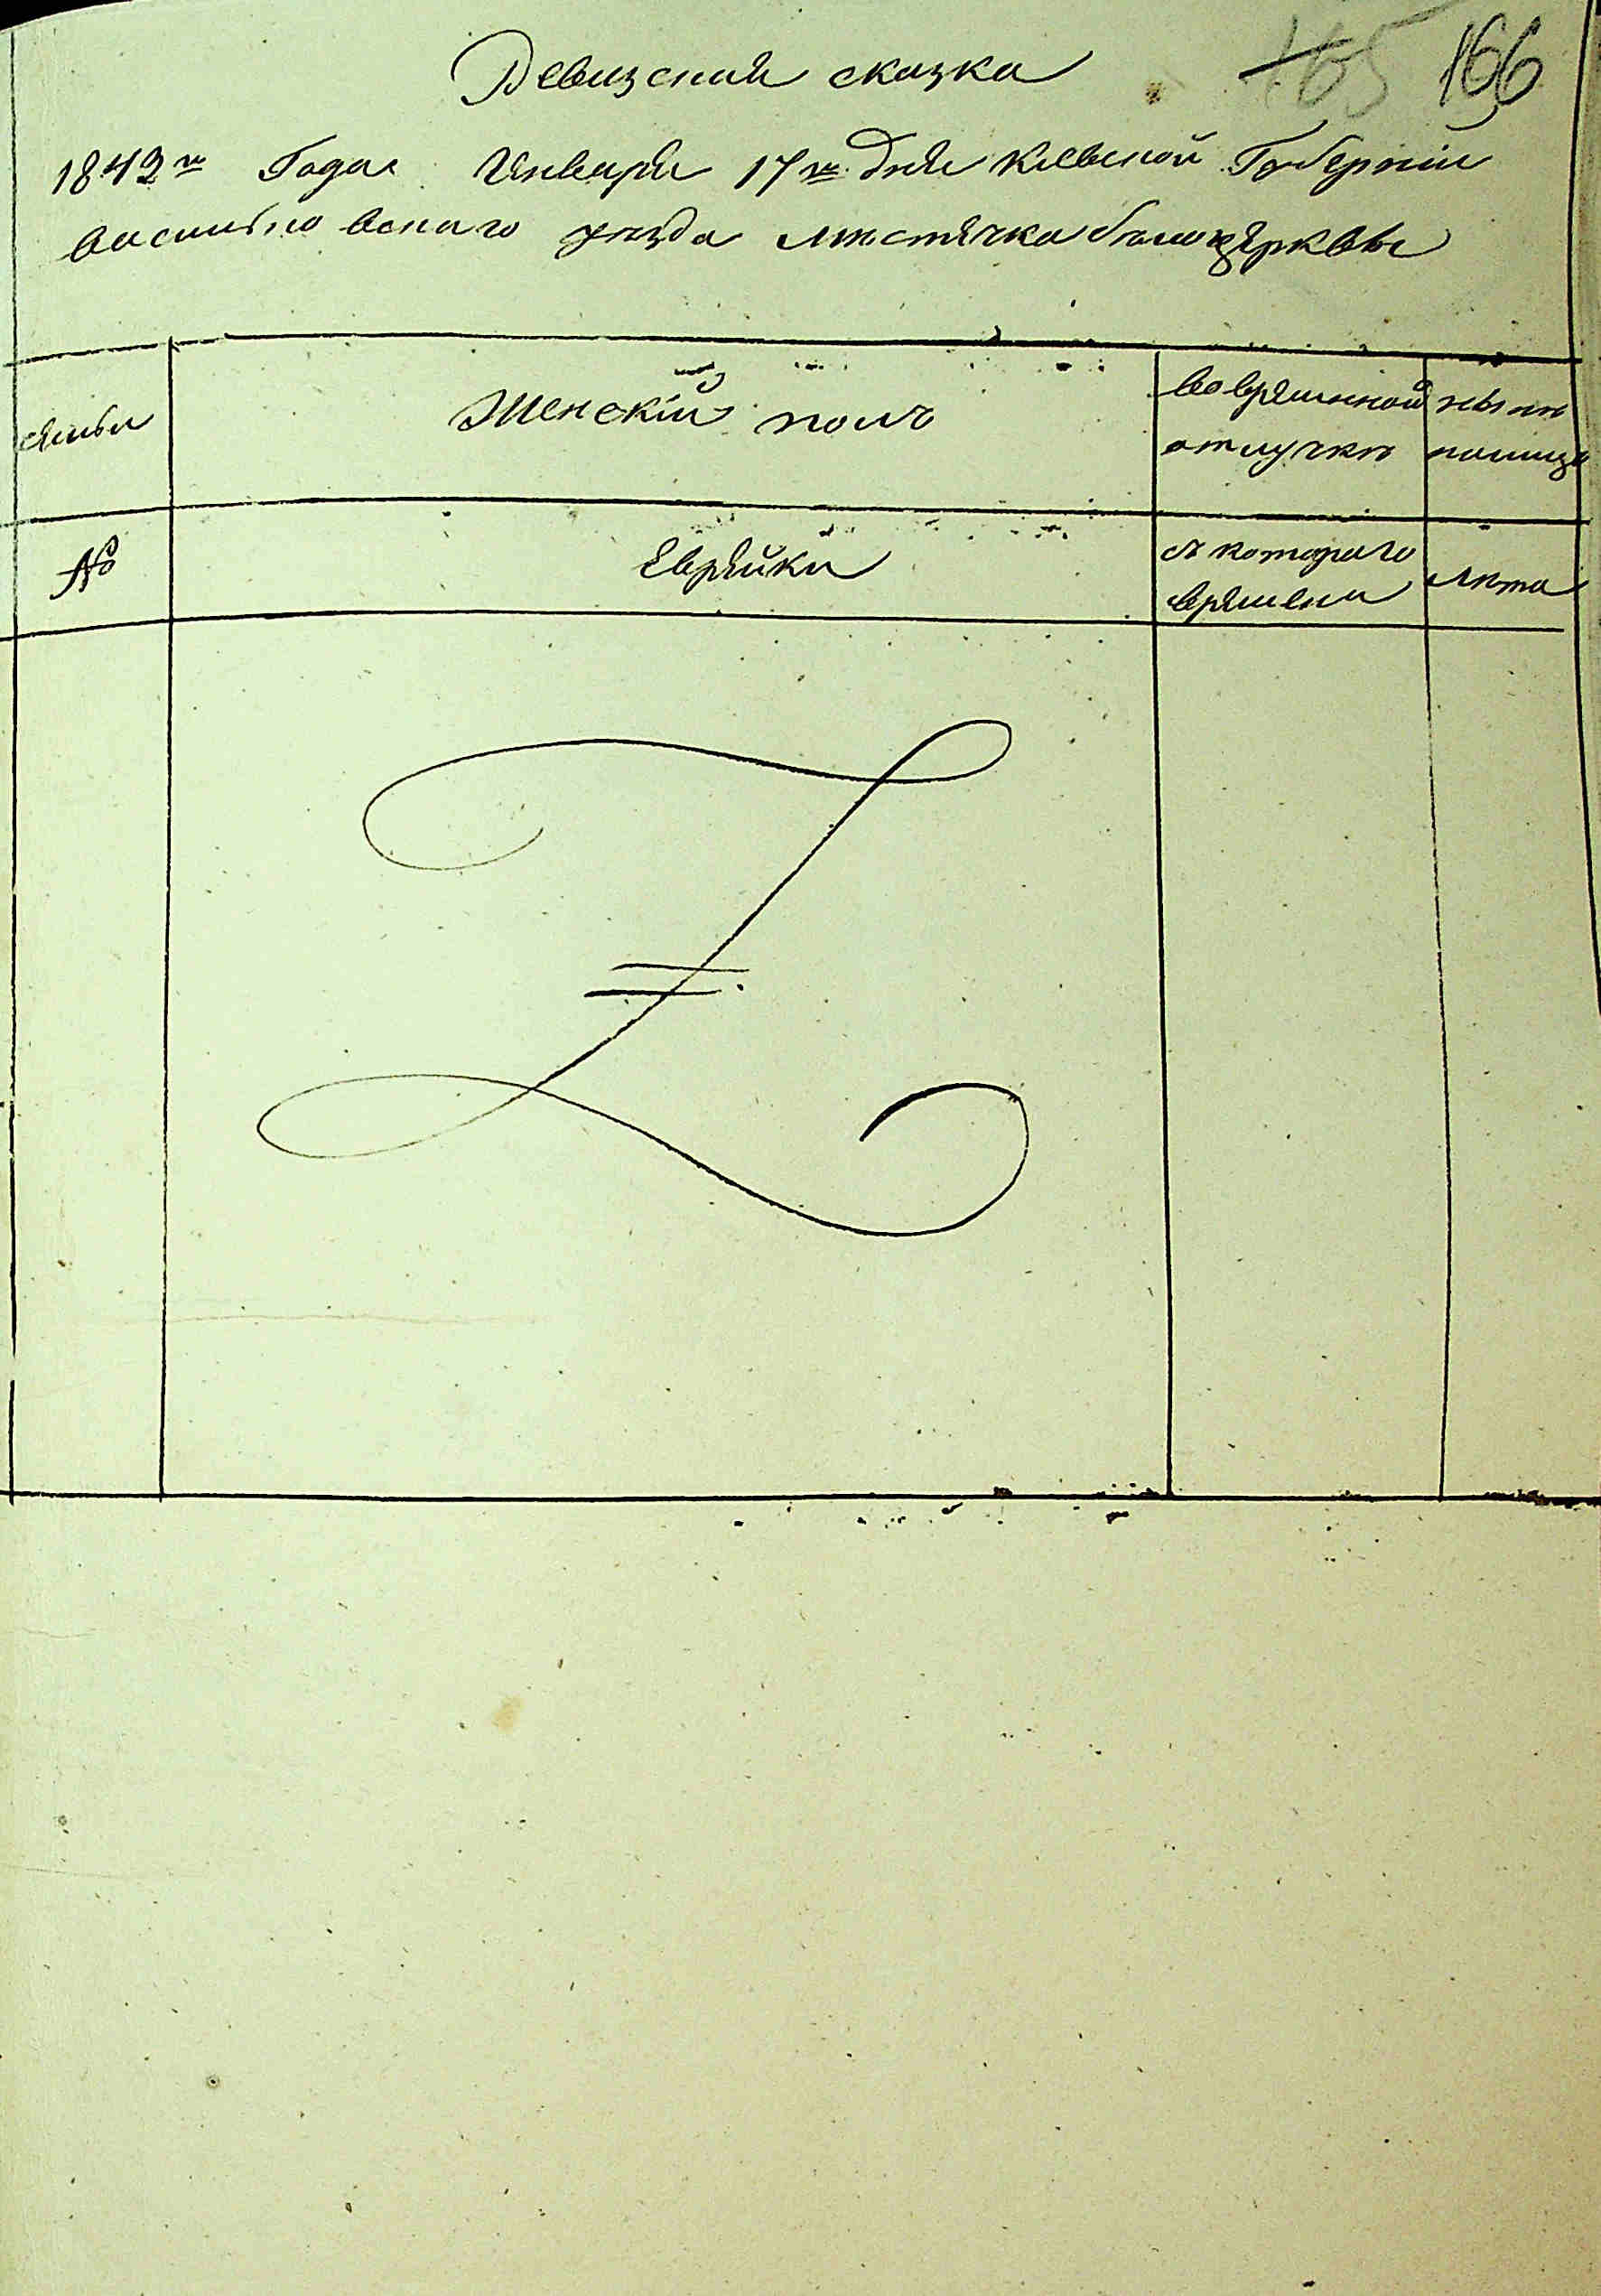 Ревизская сказка
165 166
1843го Года Января 17го дня Киевской Губернии
васильковскаго уезда местечка белоцерквы
семьи
Женский полъ
во временной отлучке
ныне налицо
№
Еврейки
съ котораго времени
лета